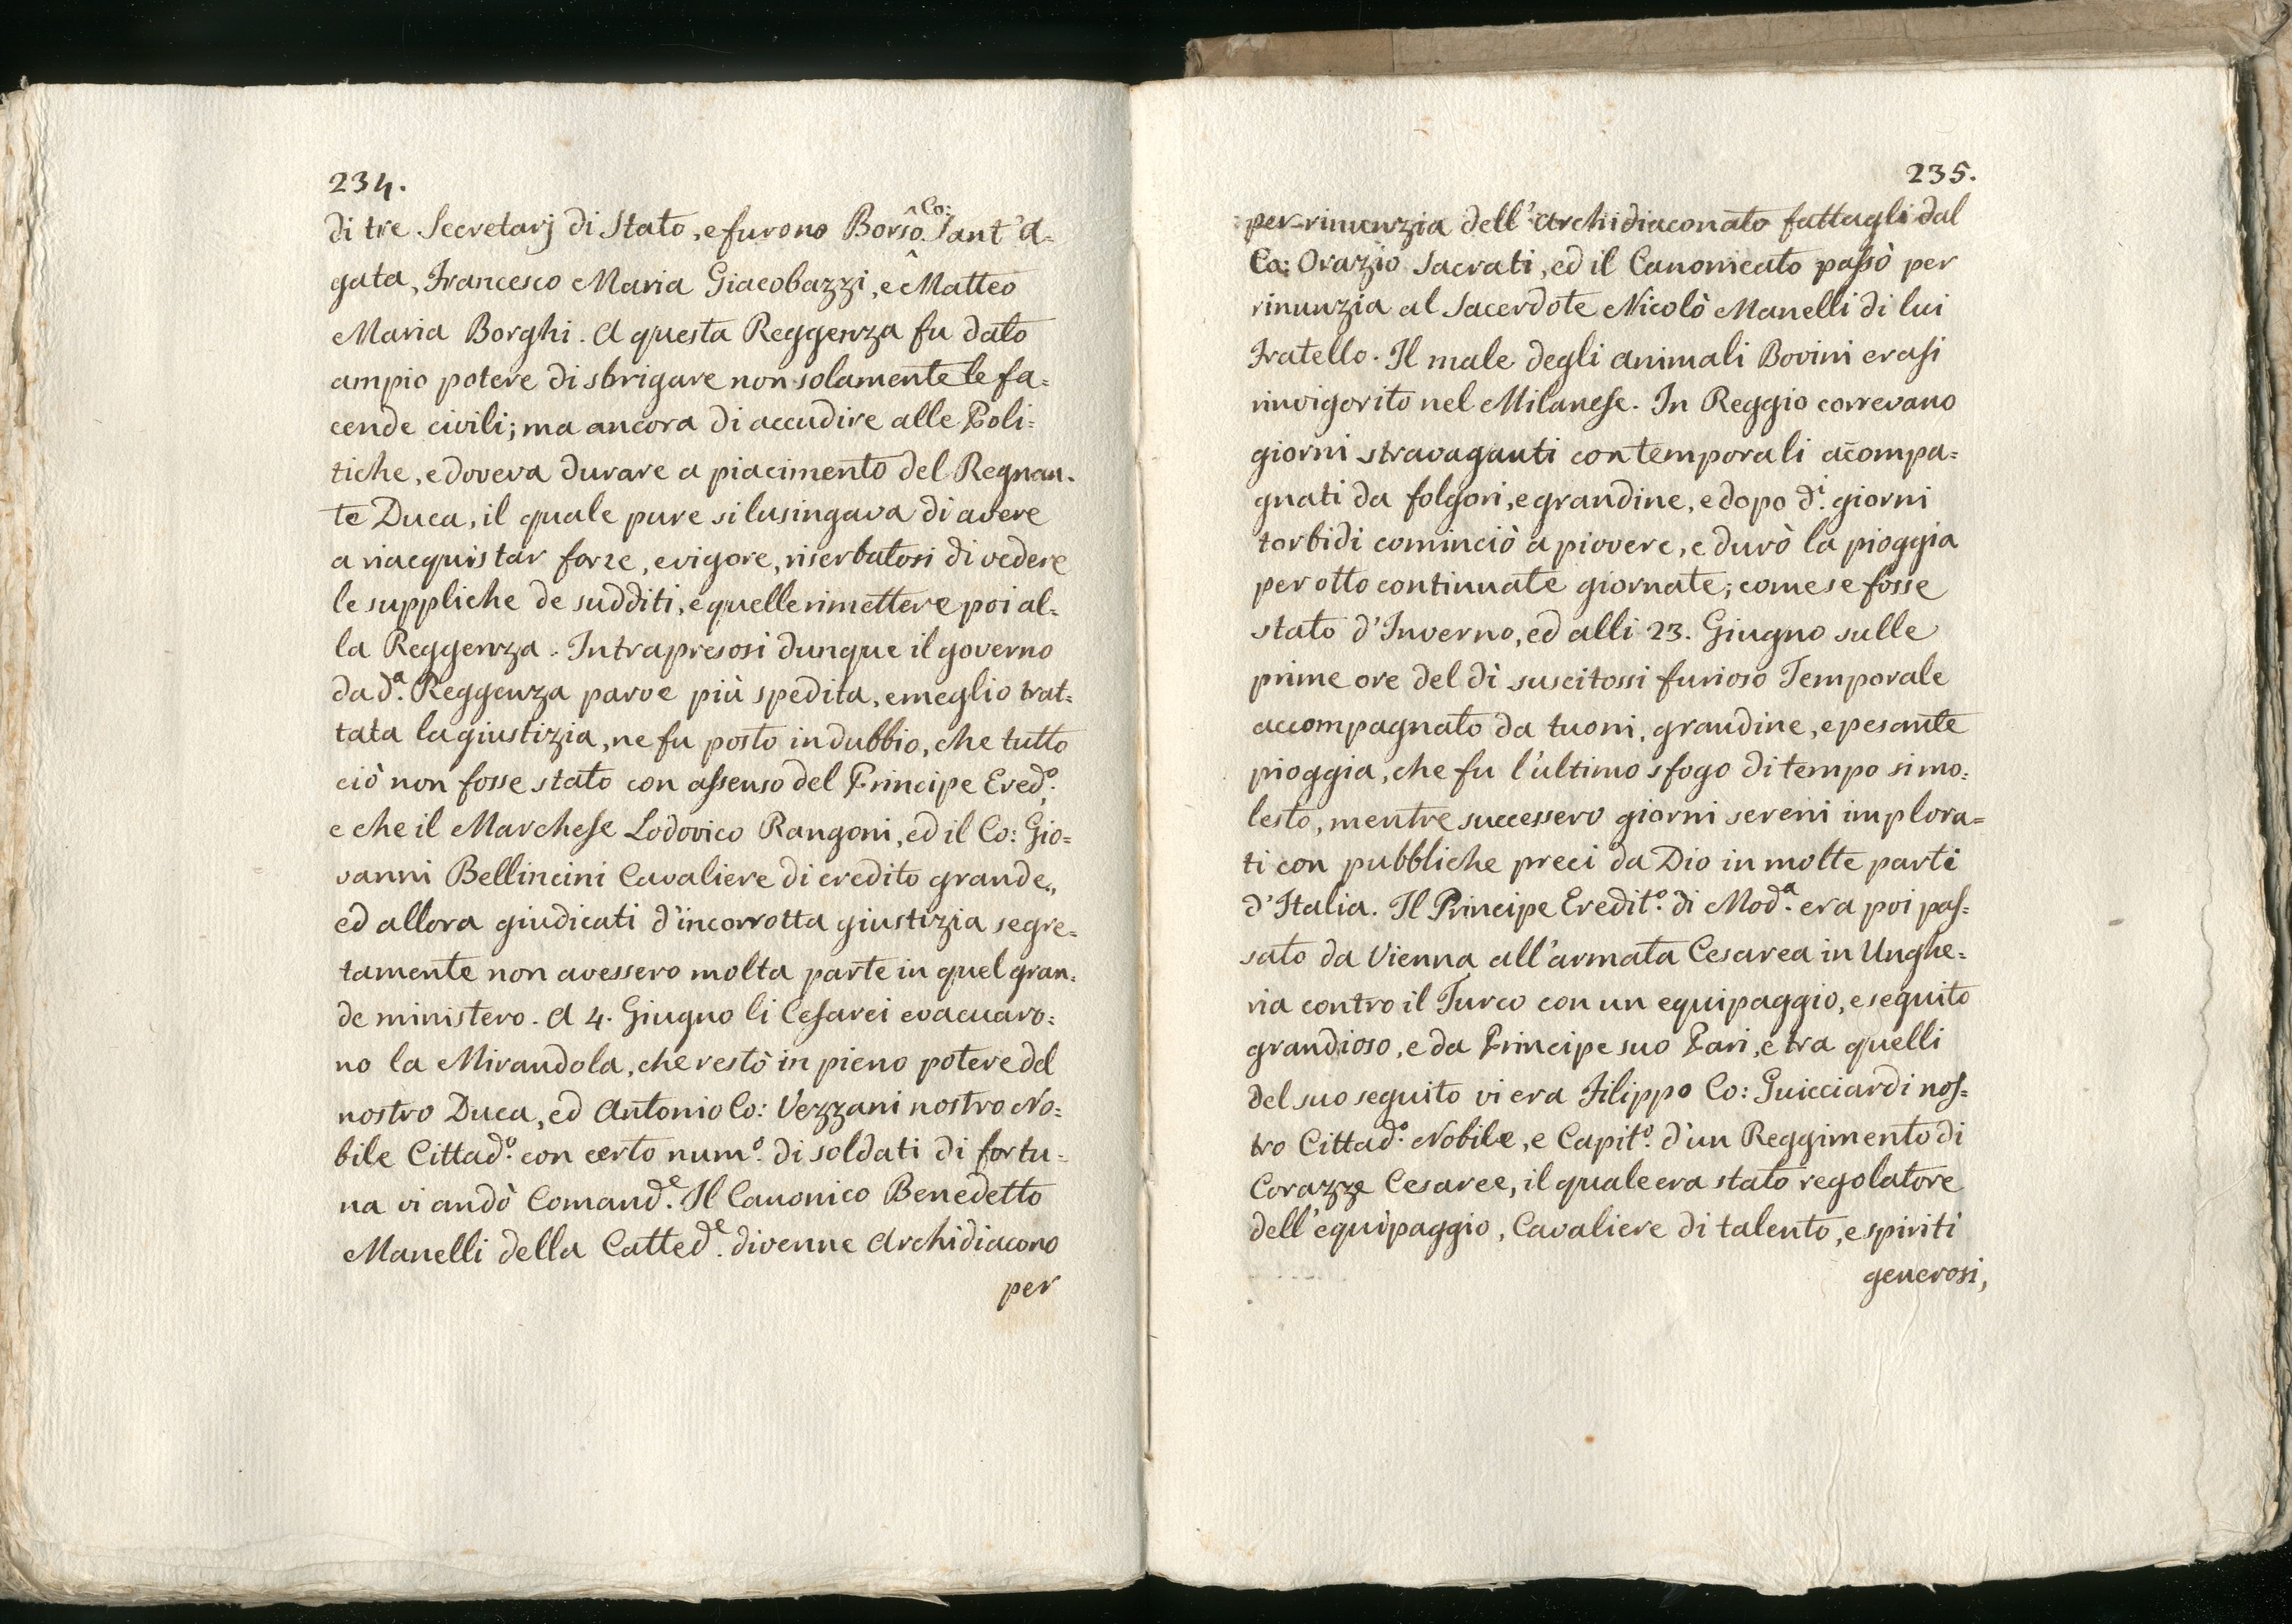 234.
di tre Secretarj di Stato, e furono Borso ^Co: Sant'A=
gata, Francesco Maria Giacobazzi, e ^Matteo
Maria Borghi. A questa Reggenza fu dato
ampio potere di sbrigare non solamente le fa=
cende civili; ma ancora di accudire alle Poli=
tiche, e doveva durare a piacimento del Regnan=
te Duca, il quale pure si lusingava di avere
a riacquistar forze, e vigore, riserbatosi di vedere
le suppliche de sudditi, e quelle rimettere poi al=
la Reggenza. Intrapresosi dunque il governo
da d.ª Reggenza parve più spedita, e meglio trat=
tata la giustizia, ne fu posto in dubbio, che tutto
ciò non fosse stato con assenso del Principe Ered.º
e che il Marchese Lodovico Rangoni, ed il Co: Gio=
vanni Bellincini Cavaliere di credito grande,
ed allora giudicati d'incorrotta giustizia segre=
tamente non avessero molta parte in quel gran=
de ministero. A 4. Giugno li Cesarei evacuaro=
no la Mirandola, che restò in pieno potere del
nostro Duca, ed Antonio Co: Vezzani nostro No=
bile Cittad.º con certo num.º di soldati di fortu=
na vi andò Comand.e Il Canonico Benedetto
Manelli della Catted.e divenne Archidiacono
per
235.
per rinunzia dell'Archidiaconato fattagli dal
Co: Orazio Sacrati, ed il Canonicato passò per
rinunzia al Sacerdote Nicolò Manelli di lui
Fratello. Il male degli animali Bovini erasi
rinvigorito nel Milanese. In Reggio correvano
giorni stravaganti con temporali acc̄ompa=
gnati da folgori, e grandine, e dopo d.i giorni
torbidi cominciò a piovere, e durò la pioggia
per otto continuate giornate; come se fosse
stato d'Inverno, ed alli 23. Giugno sulle
prime ore del dì suscitossi furioso Temporale
accompagnato da tuoni, grandine, e pesante
pioggia, che fu l'ultimo sfogo di tempo si mo=
lesto, mentre successero giorni sereni implora=
ti con pubbliche preci da Dio in molte parti
d'Italia. Il Principe Eredit.º di Mod.ª era poi pas=
sato da Vienna all'armata Cesarea in Unghe=
ria contro il Turco con un equipaggio, e seguito
grandioso, e da Principe suo Pari, e tra quelli
del suo seguito vi era Filippo Co: Guicciardi nos=
tro Cittad.º Nobile, e Capit.º d'un Reggimento di
Corazze Cesaree, il quale era stato regolatore
dell'equipaggio, Cavaliere di talento, e spiriti
generosi,